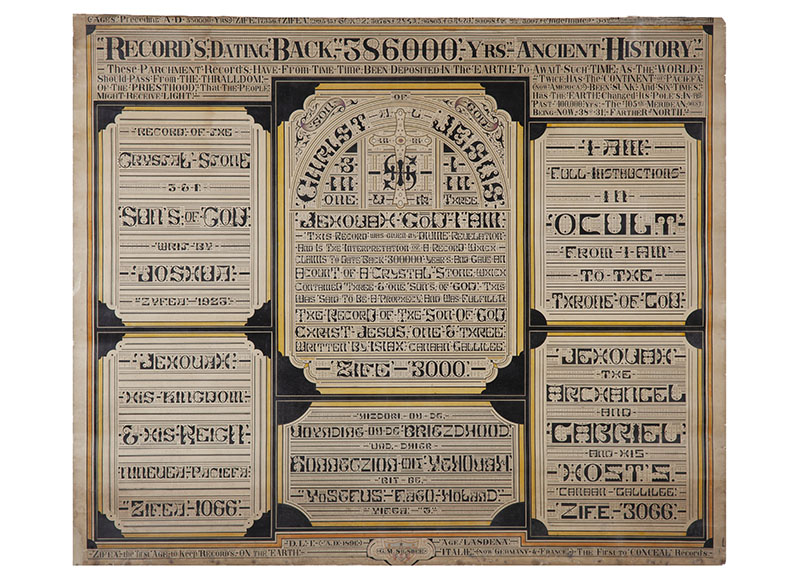 "RECORD'S DATING BACK, "386000" YRS "ANCIENT HISTORY"
These Parchment Records Have From Time Time Been Deposited In The Earth To Await Such Time As The World
Should Pass From The Thralldom
Of The Priesthood That The People
Might Receive Light
Twice Has The Continent of Pacifea
(Now America) Been Sunk And Six Times
Has The Earth Changed Its Poles In The
Past 400,000 Yrs The 105th Meridean
Being Now 38° 31' Farther North
RECORD OF THE
CRYSTAL STONE
3 & 1
SUN'S OF GOD
WRIT BY
JOSHUA
"ZYFEA 1925"
SON OF GOD
CHRIST JESUS
3 I
IN IN
ONE THREE
JEHOVAH GOD I AM
THIS RECORD WAS GIVEN BY DIVINE REVELATION
AND IS THE INTERPRETATION OF A RECORD WHICH
CLAIMS TO DATE BACK 300000 YEARS AND GAVE AN
ACOUNT OF A CRYSTAL STONE WHICH
CONTAINED THREE & ONE SUN'S OF GOD. THIS
WAS SAID TO BE A PROPHECY AND WAS FULFILLD
THE RECORD OF THE SON OF GOD
CHRIST JESUS, ONE & THREE
WRITTEN BY ISIAH CANAAN GALLILEE
"ZIFE 3000"
I AM
FULL INSTRUCTIONS
IN
"OCULT"
FROM I AM
TO THE
THRONE OF GOD
JEHOVAH
HIS KINGDOM
& HIS REIGN
NINEVEA PACIEFA
"ZIFEA 1066"
BRIEZDHOOD
UND
YEHOVAH
RIT BE
YOSEFUS HOLAND
JEHOVAH
THE
ARCHANGEL
AND
"GABRIEL"
AND HIS
HOST'S
CANAAN GALLILEE
"ZIFE 3066"
D.L.F. A.D. 1896
AGE LASDENA
"ZIFEA" the First Age to Keep Records ON the EARTH
ITALIE (NOW GERMANY & FRANCE) The First to "CONCEAL" Records